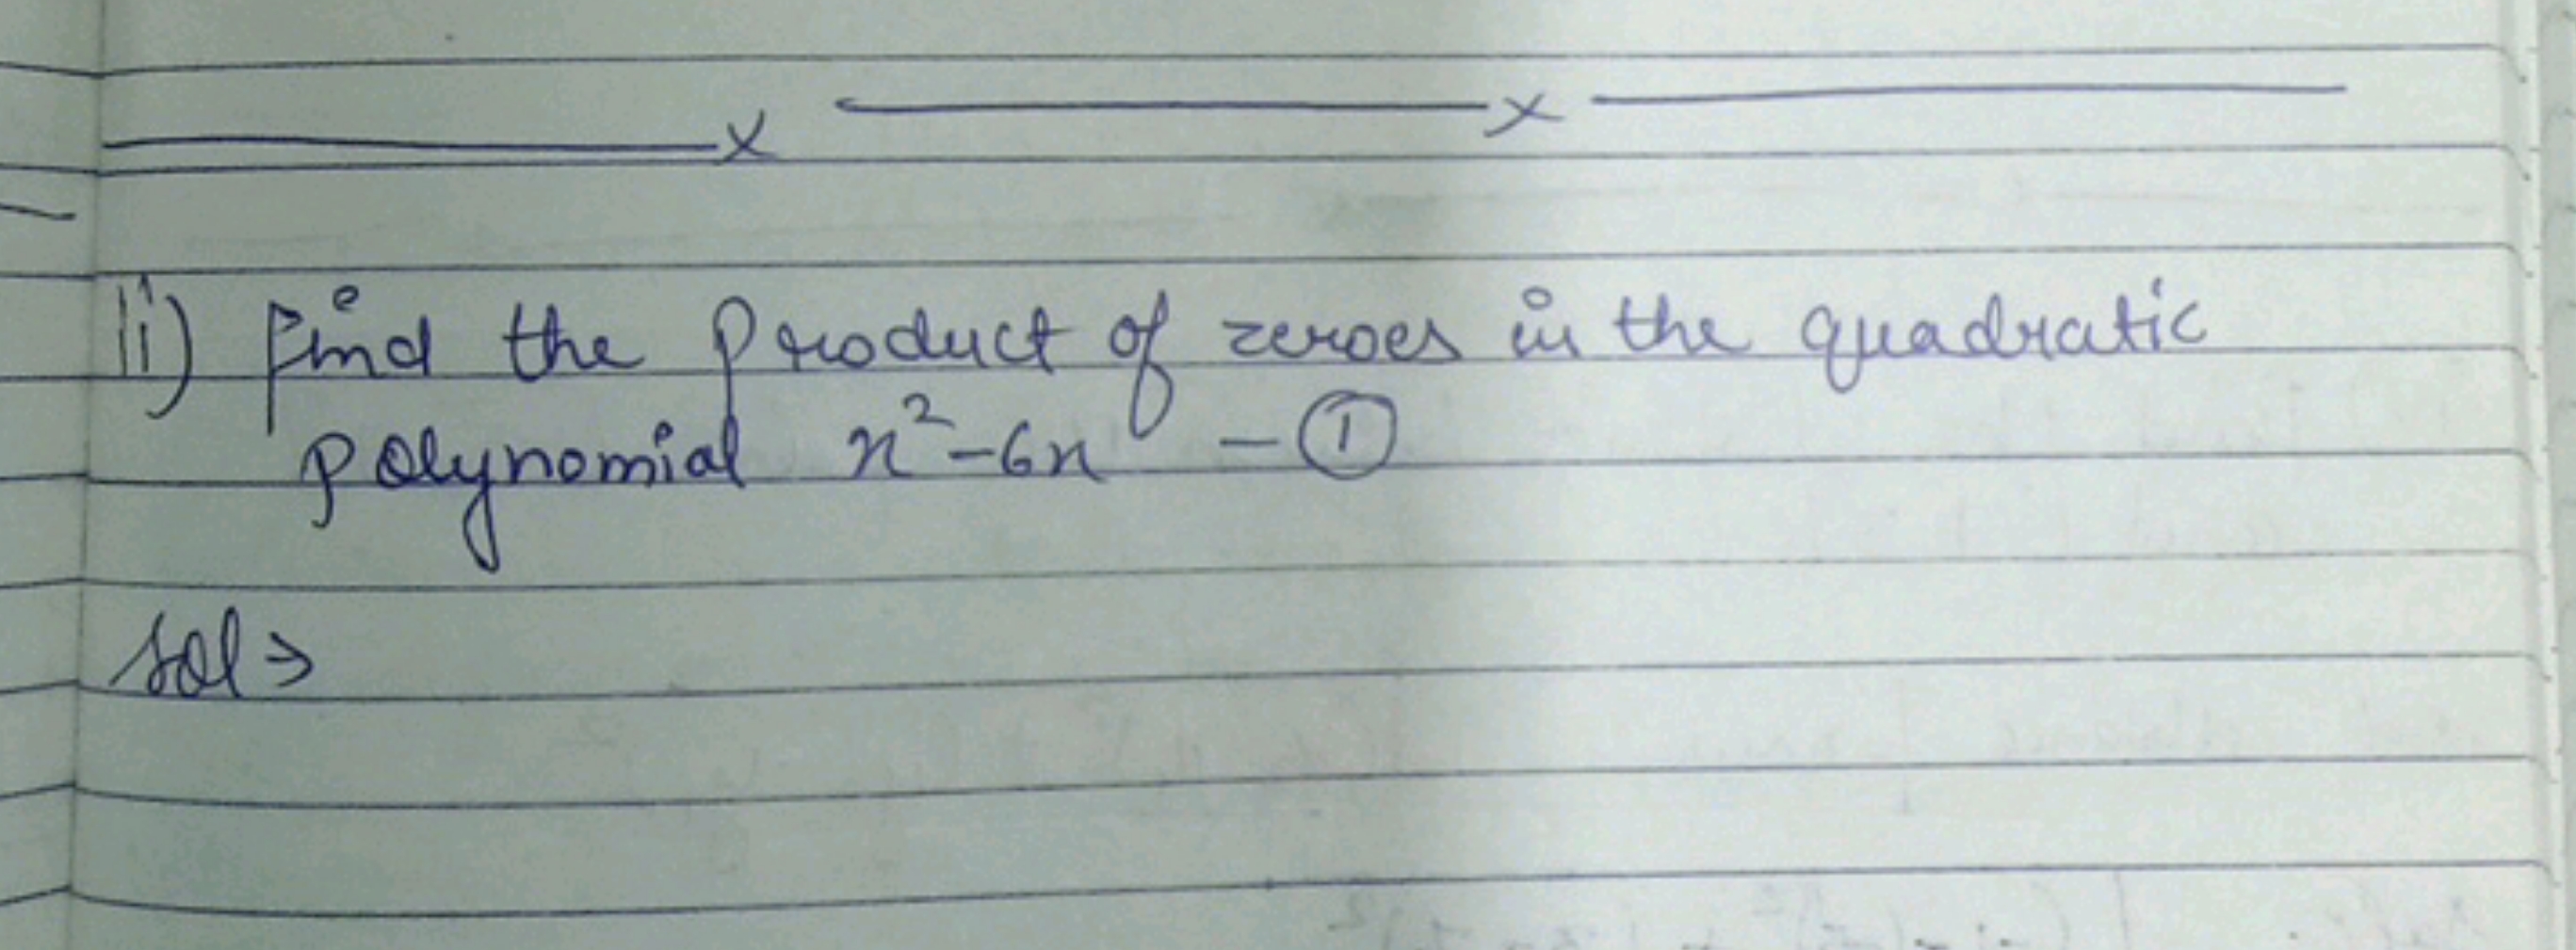 ii) Find the product of zeroes in the quadratic
polynomial x²-6x - ①
Sol ⇒